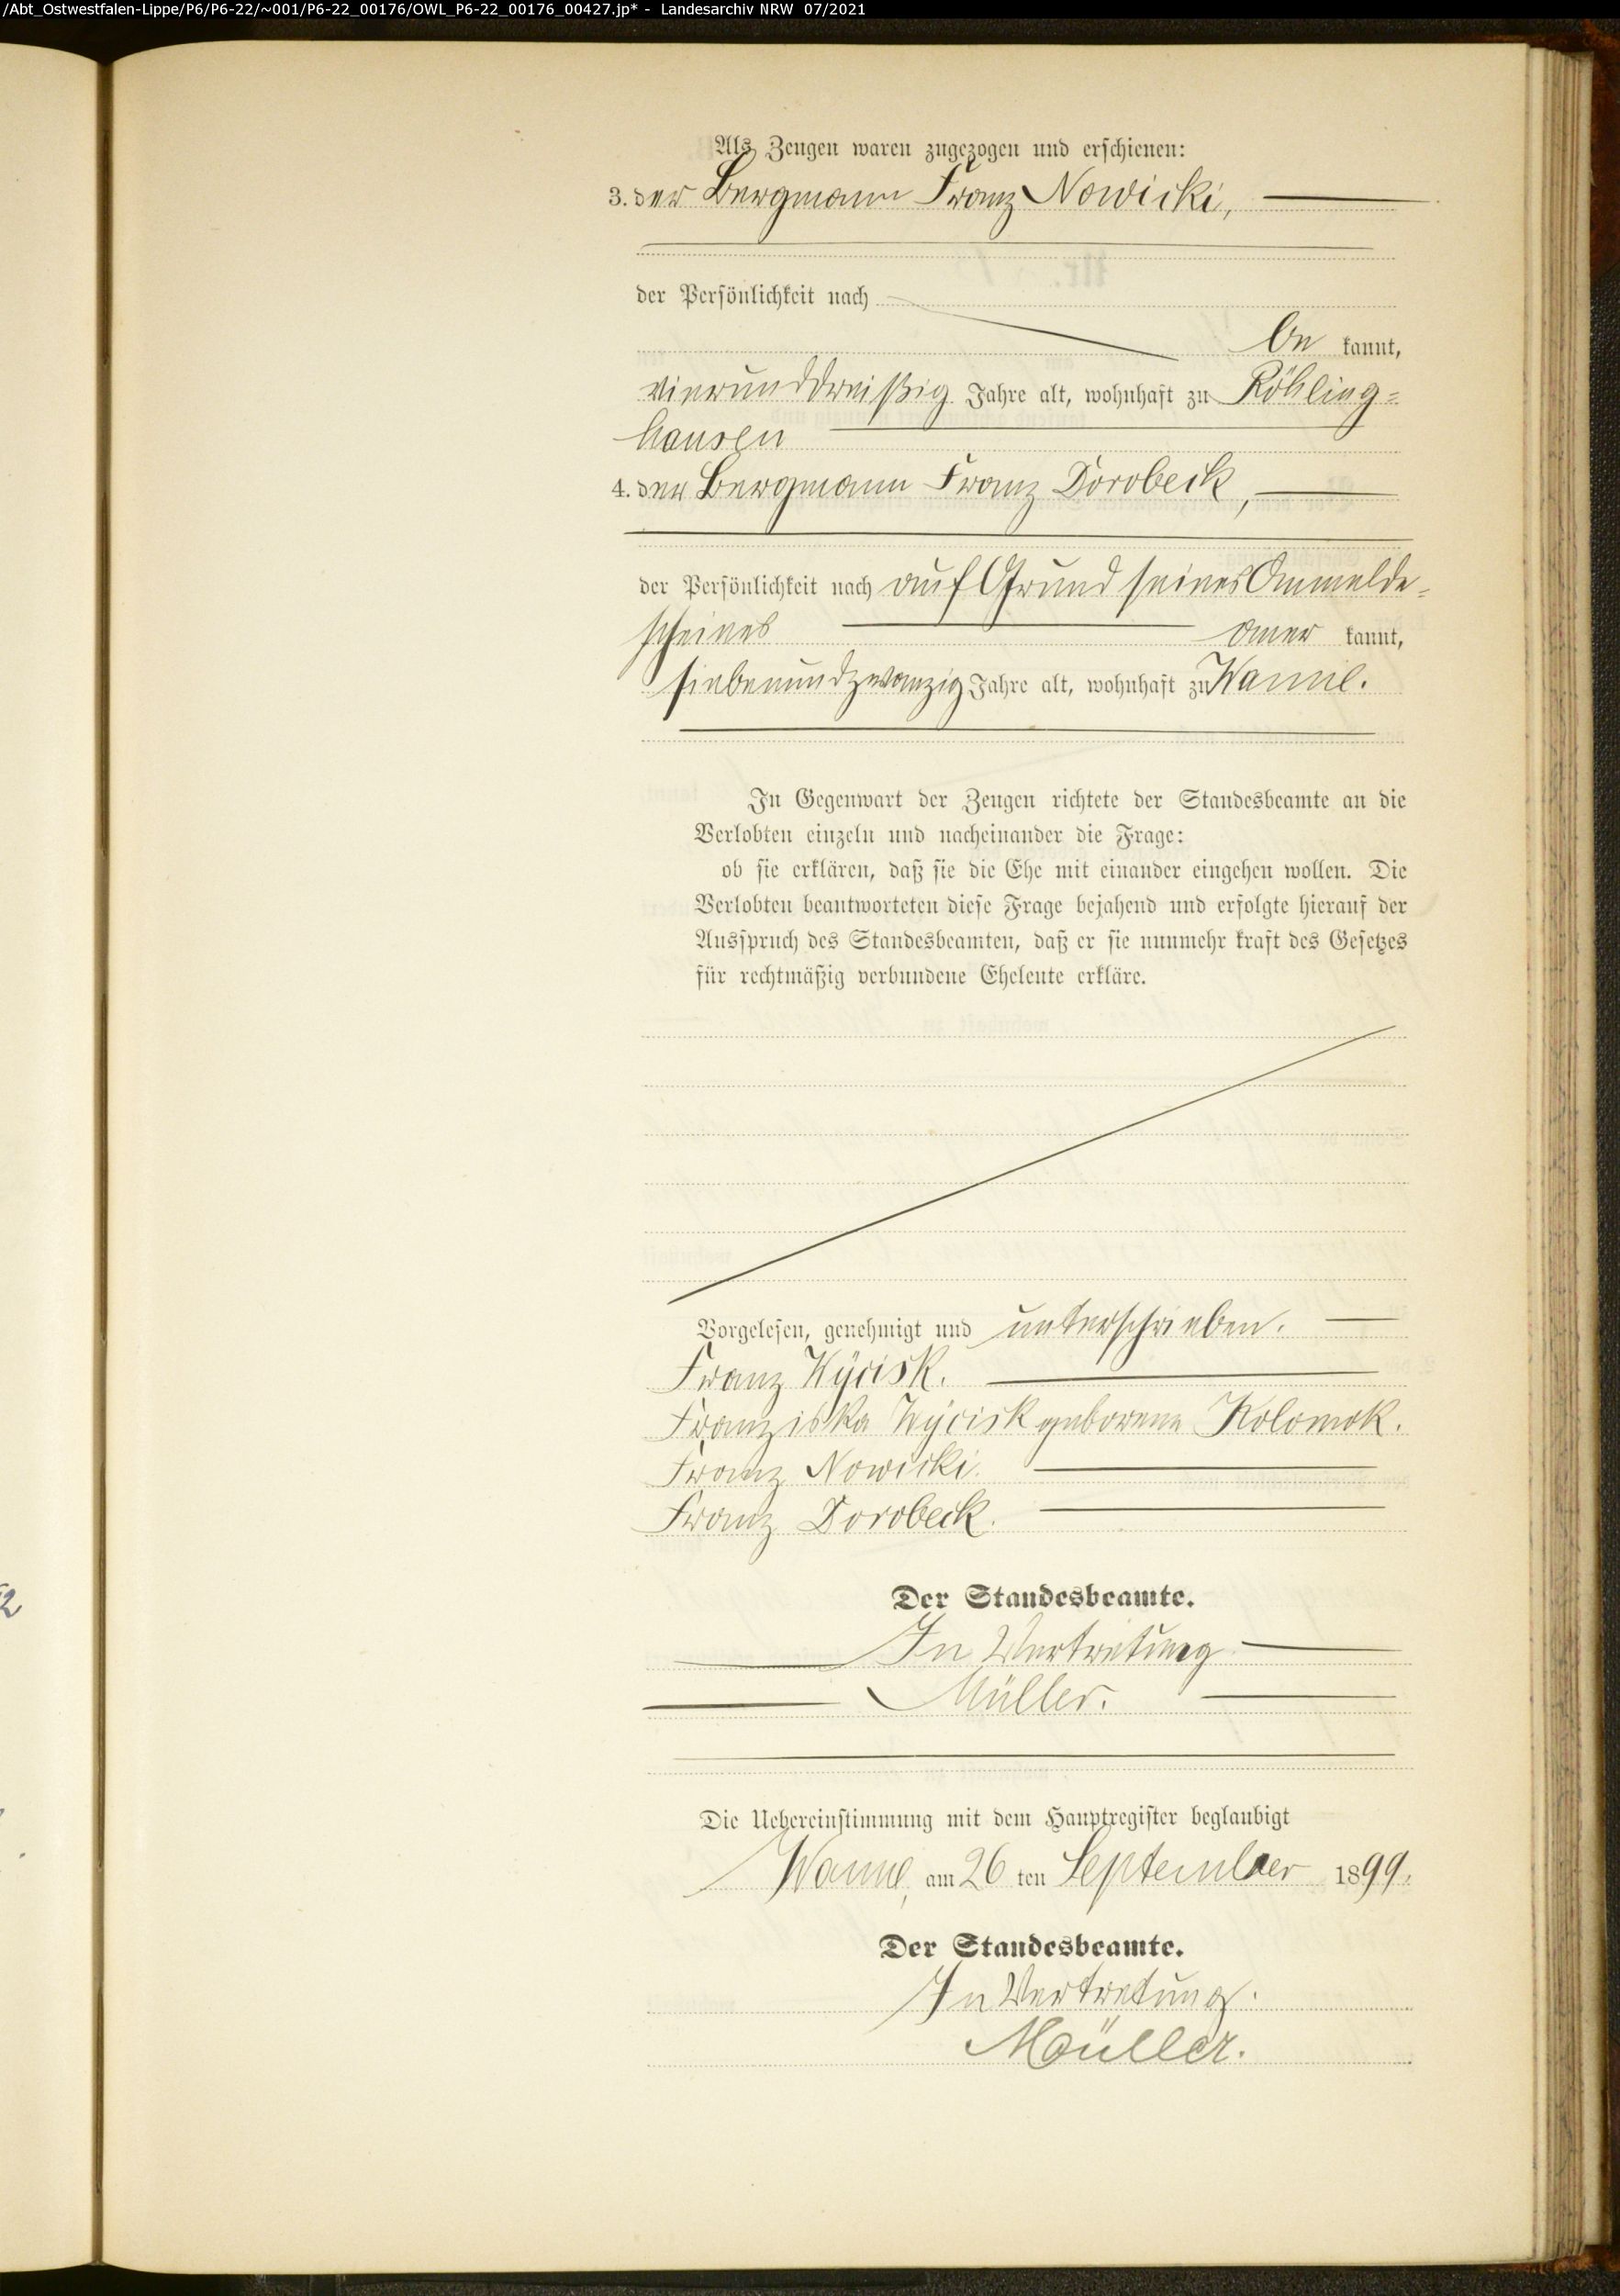 /Abt_Ostwestfalen-Lippe/P6/P6-22/~001/P6-22_00176/OWL_P6-22_00176_00427.jp* - Landesarchiv NRW 07/2021
Als Zeugen waren zugezogen und erschienen:
3. der Bergmann Franz Nowicki,
der Persönlichkeit nach
be kannt,
vierunddreißig Jahre alt, wohnhaft zu Röhling=
hausen
4. der Bergmann Franz Dorobeck,
der Persönlichkeit nach auf Grund seines Anmelde=
scheines aner kannt,
siebenundzwanzig Jahre alt, wohnhaft zu Wanne.
In Gegenwart der Zeugen richtete der Standesbeamte an die
Verlobten einzeln und nacheinander die Frage:
ob sie erklären, daß sie die Ehe mit einander eingehen wollen. Die
Verlobten beantworteten diese Frage bejahend und erfolgte hierauf der
Ausspruch des Standesbeamten, daß er sie nunmehr kraft des Gesetzes
für rechtmäßig verbundene Eheleute erkläre.
Vorgelesen, genehmigt und unterschrieben.
Franz Wÿcisk.
Franziska Wÿcisk geborene Kolomok.
Franz Nowicki.
Franz Dorobeck.
Der Standesbeamte.
In Vertretung
Müller.
Die Uebereinstimmung mit dem Hauptregister beglaubigt
Wanne, am 26 ten September 1899.
Der Standesbeamte.
In Vertretung.
Müller.